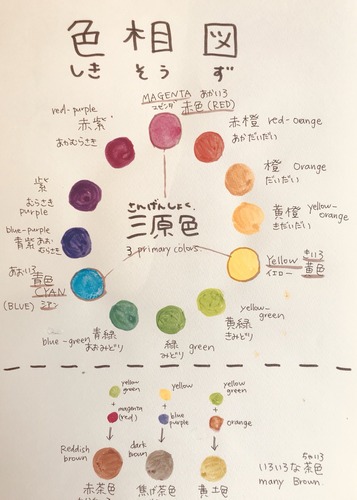 色相図
しき そう ず
MAGENTA あかいろ
マゼンダ 赤色(RED)
red-purple
赤紫
あかむらさき
赤橙 red-orange
あかだいだい
紫
むらさき
purple
橙 Orange
だいだい
さんげんしょく
三原色
3 primary colors
黄橙 yellow-orange
きだいだい
blue-purple
青紫 あおむらさき
あおいろ
青色
CYAN
(BLUE) シアン
Yellow きいろ
イエロー 黄色
blue-green 青緑
あおみどり
緑 green
みどり
yellow-green
黄緑
きみどり
yellow green
+
magenta (red)
yellow
+
blue purple
yellow green
+
orange
Reddish brown
赤茶色
dark brown
焦げ茶色
黄土色
ちゃいろ
いろいろな茶色
many Brown